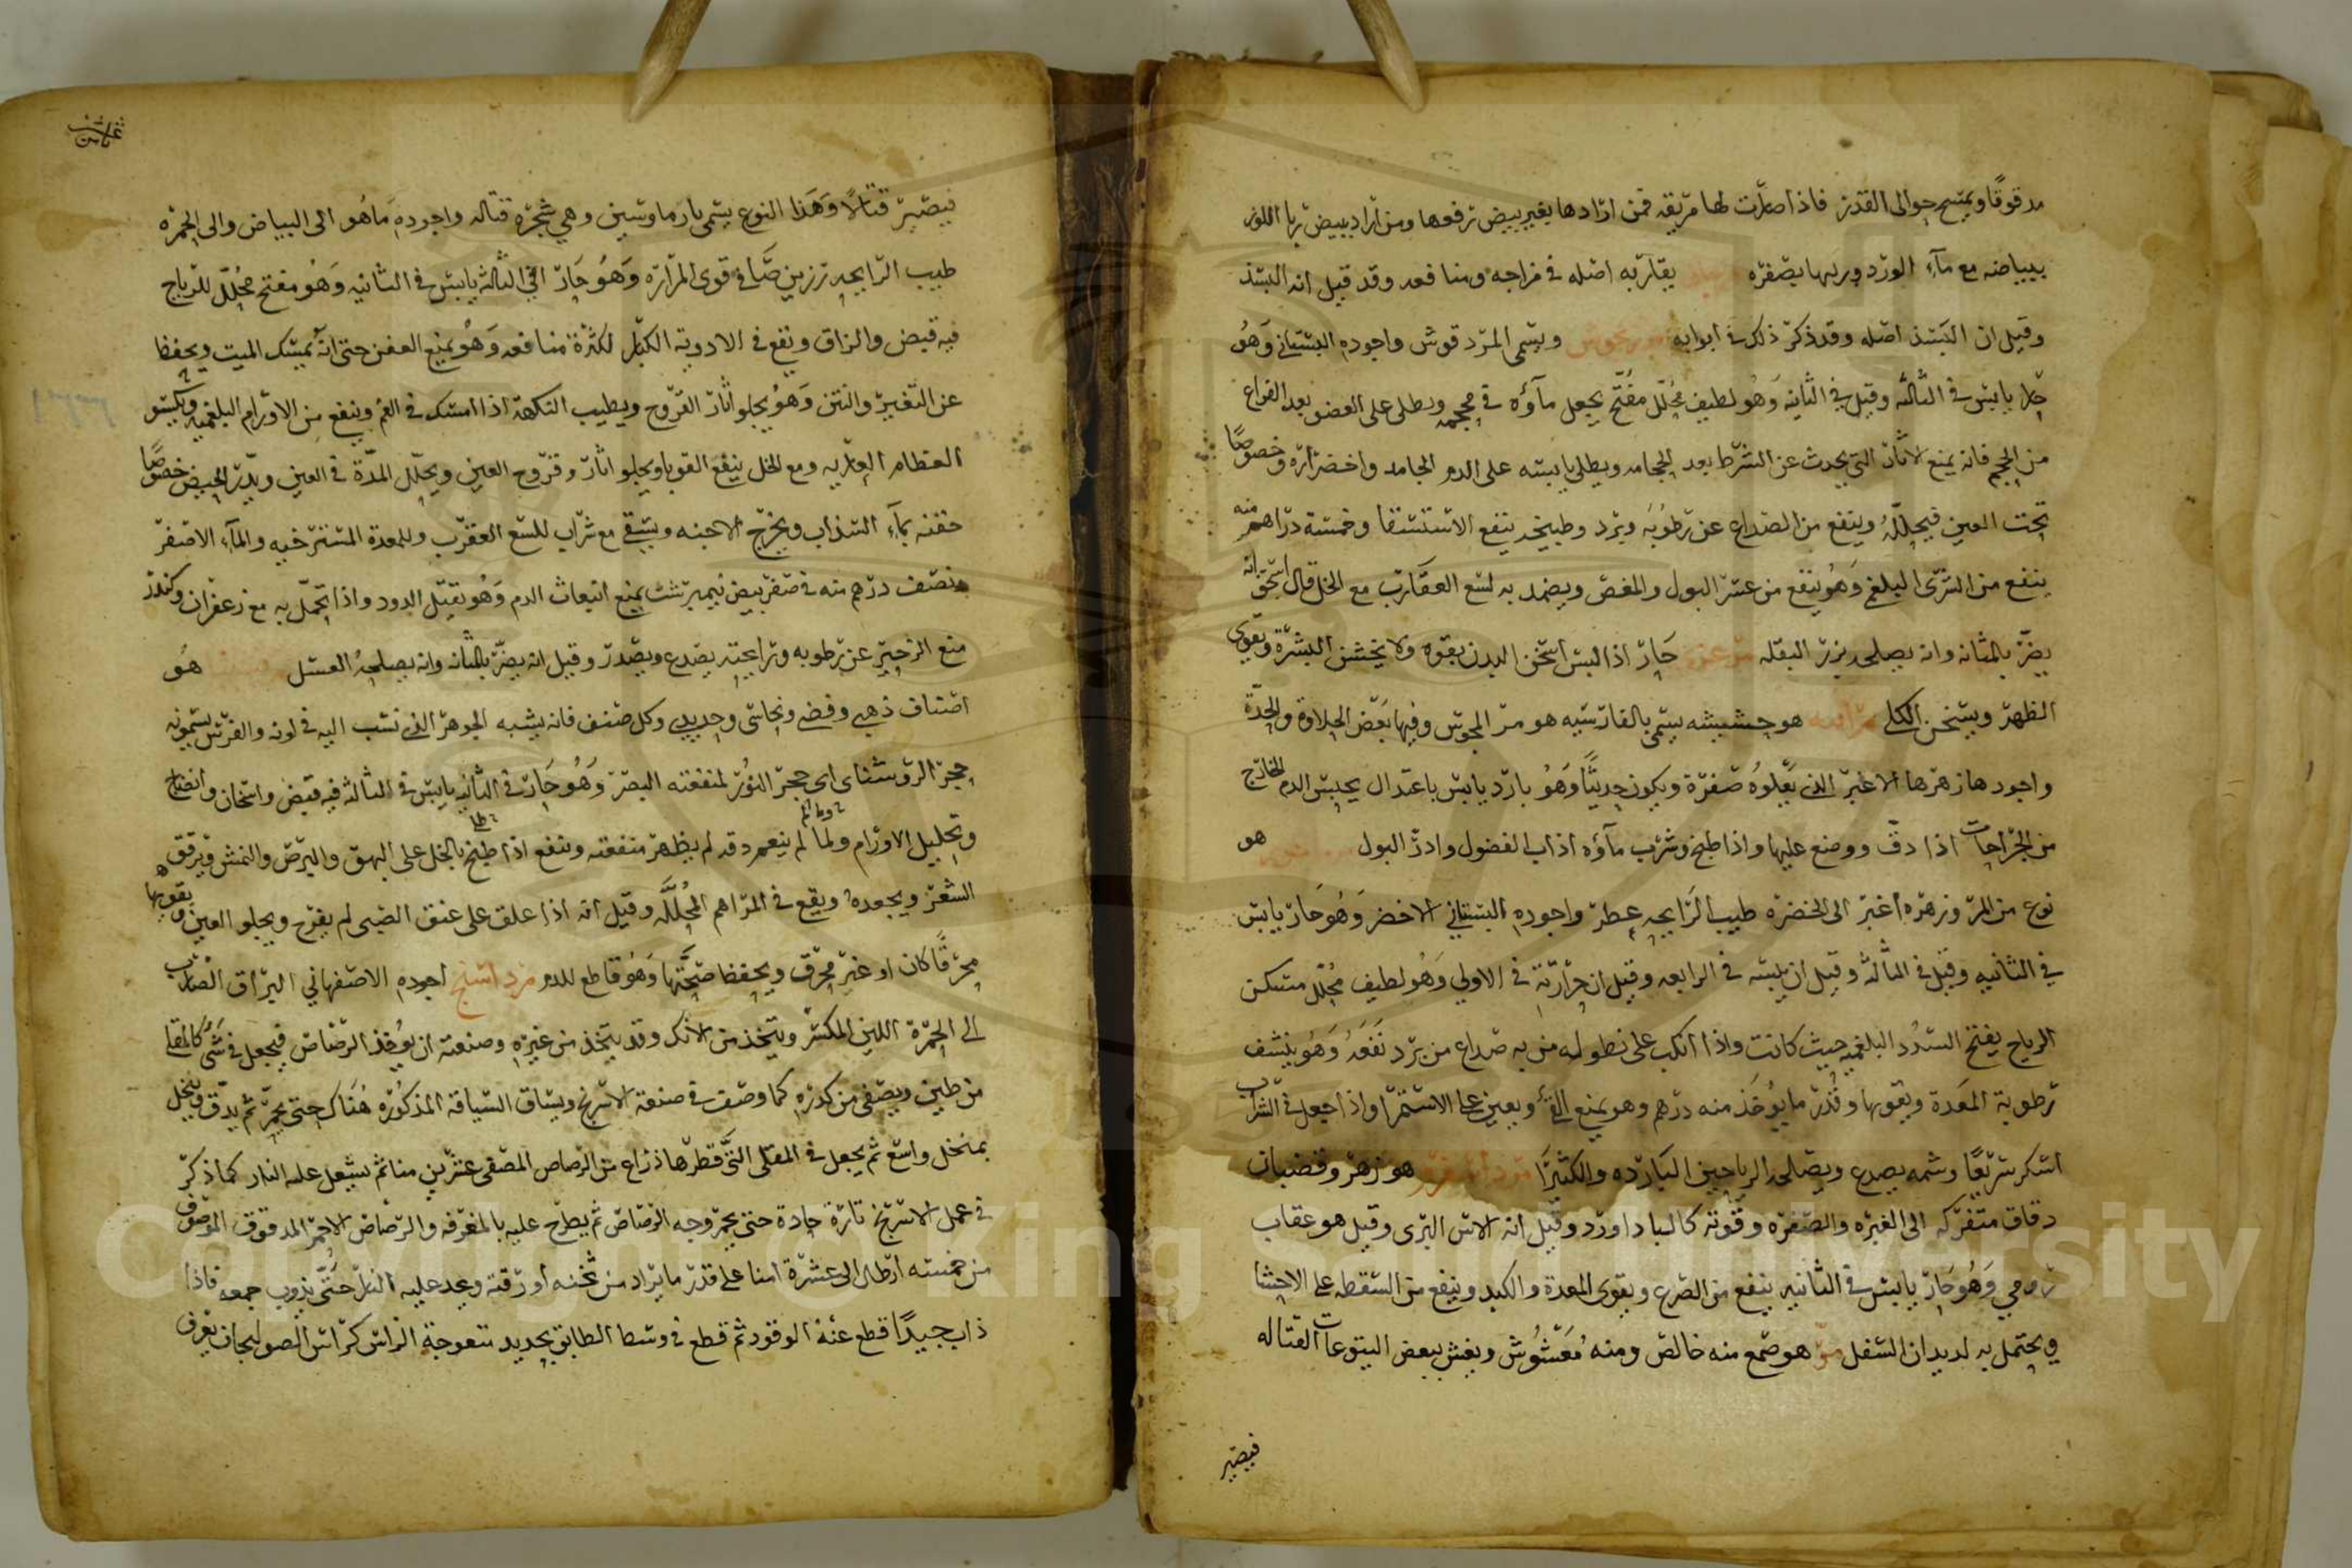 مدقوقا ويمسح حوالي القدر فاذا صارت لها مريقه فمن ارادها بغير بيض رفعها ومن اراد ببيض رباا للون
ببياضه مع مآء الورد وربها بصفره يقاربه اصله في مزاجه ومنافعه وقد قيل انه البسد
وقيل ان البسد اصله وقد ذكر ذلك في ابوابه مرزنجوش ويسمى المردقوش واجوده البستاني وهو
حار يابس في الثالثه وقيل في الثانيه وهو لطيف محلل مفتح يجعل مآؤه في محجمه ويطلى على العضو بعد الفراغ
من الحجم فانه يمنع الاثار التي تحدث عن الشرط بعد الحجامه ويطلى يابسه على الدم الجامد واخضراره وخصوصا
تحت العين فيحلله وينفع من الصداع عن رطوبه وبرد وطبيخه ينفع الاستسقا وخمسة دراهم منه
ينفع من الشرى البلغمي وهو ينفع من عسر البول والمغص ويضمد به لسع العقارب مع الخل قال اسحق انه
يضر بالمثانه وانه يصلحه بزر البقله مرعزي حار اذا لبس اسخن البدن بقوه ولا يخشن البشرة ويقوي
الظهر ويسخن الكلى مرّاهيه هو حشيشه يسمى بالفارسيه هو مر المجوس وفيها بعض الحلاوة والحدة
واجودها زهرها الاغبر الذي يعلوه صفرة ويكون حديثا وهو بارد يابس باعتدال يحبس الدم الخارج
من الجراحات اذا دق ووضع عليها واذا طبخ وشرب مآؤه اذاب الفضول وادر البول هو
نوع من المر وزهره اغبر الى الخضره طيب الرايحه عطر واجوده البستاني الاخضر وهو حار يابس
في الثانيه وقيل في الثالثه وقيل ان يبسه في الرابعه وقيل ان حرارته في الاولى وهو لطيف محلل مسكن
الرياح يفتح السدد البلغميه حيث كانت واذا انكب على نطوله من به صداع من برد نفعه وهو ينشف
رطوبة المعدة ويقويها وقدر ما يؤخذ منه درهم وهو يمنع القئ ويعين على الاستمرا واذا جعل في الشراب
اسكر سريعا وشمه يصدع ويصلحه الرياحين البارده والكثيرا هو زهر وقضبان
دقاق متفركه الى الغبره والصفره وقوته كالباداورد وقيل انه الاس البرى وقيل هو عقاب
رومي وهو حار يابس في الثانيه ينفع من الصرع ويقوى المعدة والكبد وينفع من السقطه على الاحشا
ويحتمل به لديدان السفل مر هو صمغ منه خالص ومنه مغشوش ويغش ببعض اليتوعات القتاله
فيصير
فيصير قتالا وهذا النوع يسمى بارماوسين وهي شجرة قتاله واجوده ما هو الى البياض والى الحمره
طيب الرايحه رزين صافي قوى المراره وهو حار في الثالثه يابس في الثانيه وهو مفتح محلل للرياح
فيه قبض والزاق ويقع في الادوية الكبار لكثرة منافعه وهو يمنع العفن حتى انه يمسك الميت ويحفظه
عن التغير والنتن وهو يجلو اثار القروح ويطيب النكهة اذا امسك في الفم وينفع من الاورام البلغميه ويكسو
العظام العاريه ومع الخل ينفع القوبا ويجلو اثار وقروح العين ويحلل المدة في العين ويدر الحيض خصوصا
حقنه بمآء السذاب ويخرج الاجنه ويسقى مع شراب للسع العقرب وللمعدة المسترخيه والمآء الاصفر
ونصف درهم منه في صفر بيض نيمبرشت يمنع انبعاث الدم وهو يقتل الدود واذا تحمل به مع زعفران وكندر
منع الزحير عن رطوبه ورايحته يصدع ويصدر وقيل انه يضر بالمثانه وانه يصلحه العسل هو
اصناف ذهبي وفضي ونحاسي وحديدي وكل صنف فانه يشبه الجوهر الذي نسب اليه في لونه والفرس يسمونه
حجر الروشناى اى حجر النور لمنفعته البصر وهو حار في الثانيه يابس في الثالثه فيه قبض واسخان وانضاج
وتحليل الاورام ولما لم ينعم دقه لم يظهر منفعته وينفع اذا طبخ بالخل على البهق والبرص والنمش ويرقق
الشعر ويجعده ويقع في المراهم المحلله وقيل انه اذا علق على عنق الصبى لم يفزع ويجلو العين ويقويها
محرقا كان او غير محرق ويحفظ صحتها وهو قاطع للدم مرداسنج اجوده الاصفهاني البراق الضارب
الى الحمرة اللين المكسر ويتخذ من الانك وقد يتخذ من غيره وصنعته ان يؤخذ الرصاص فيجعل في شئ كالمقلى
من طين ويصفى من كدره كما وصف في صنعة الاسرنج ويساق السياقة المذكوره هناك حتى يحمر ثم يدق وينخل
بمنخل واسع ثم يجعل في المقلى التي قطرها ذراع من الرصاص المصفى عشرين منا ثم يشعل عليه النار كما ذكر
في عمل الاسرنج تارة حادة حتى يحمر وجه الرصاص ثم يطرح عليه بالمغرفه والرصاص الاحمر المدقوق الموصوف
من خمسة ارطال الى عشرة امنا على قدر ما يراد من ثخنه او رقته ويجد عليه النار حتى يذوب جمعه فاذا
ذاب جيدا قطع عنه الوقود ثم قطع في وسط الطابق بحديد متعوجة الراس كراس الصولجان يغرف